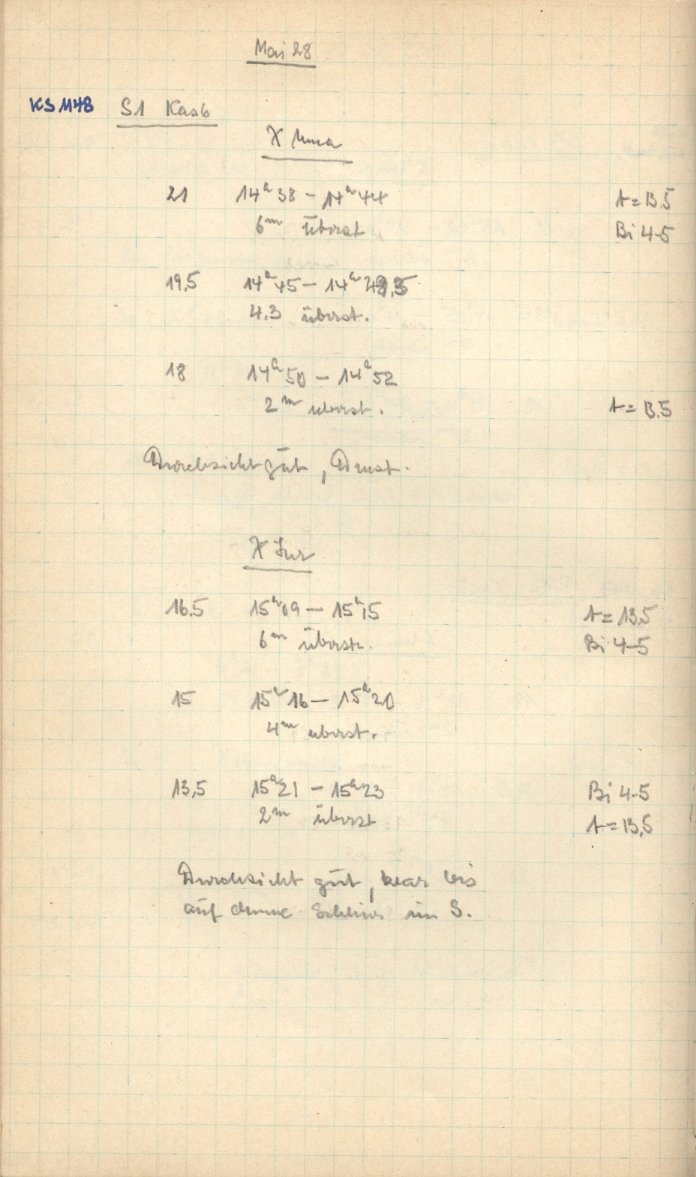 Mai 28
KS 1148 S1 Kasb
X
21 14ʰ38 – 14ʰ44 A = 13.5
6ᵐ überst. Bi 4-5
19,5 14ʰ45 – 14ʰ49,3
4,3 überst.
18 14ʰ50 – 14ʰ52
2ᵐ überst. A = 13.5
Durchsicht gut, Dunst.
X
16,5 15ʰ09 – 15ʰ15 A = 13.5
6ᵐ überst. Bi 4-5
15 15ʰ16 – 15ʰ20
4ᵐ überst.
13,5 15ʰ21 – 15ʰ23 Bi 4-5
2ᵐ überst A = 13.5
Durchsicht gut, klar bis
auf dünne Schlier im S.